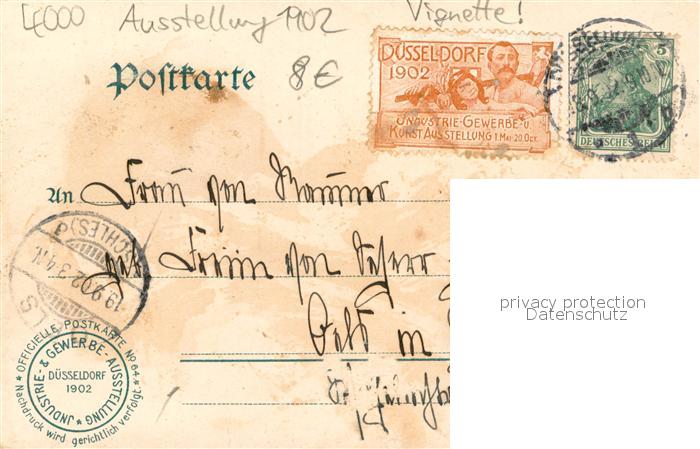 4000 Ausstellung 1902 Vignette!
Postkarte
8€
DÜSSELDORF
1902
INDUSTRIE-GEWERBE-U.
KUNST AUSSTELLUNG 1. MAI-20. OCT.
5
DEUTSCHES REICH
An Frau von
geb Freiin von Scherr
Oels in
(SCHLES)
19.9.02.3-4.N.
privacy protection
Datenschutz
* OFFICIELLE POSTKARTE No 64. *
Nachdruck wird gerichtlich verfolgt.
INDUSTRIE- & GEWERBE-AUSSTELLUNG *
DÜSSELDORF
1902